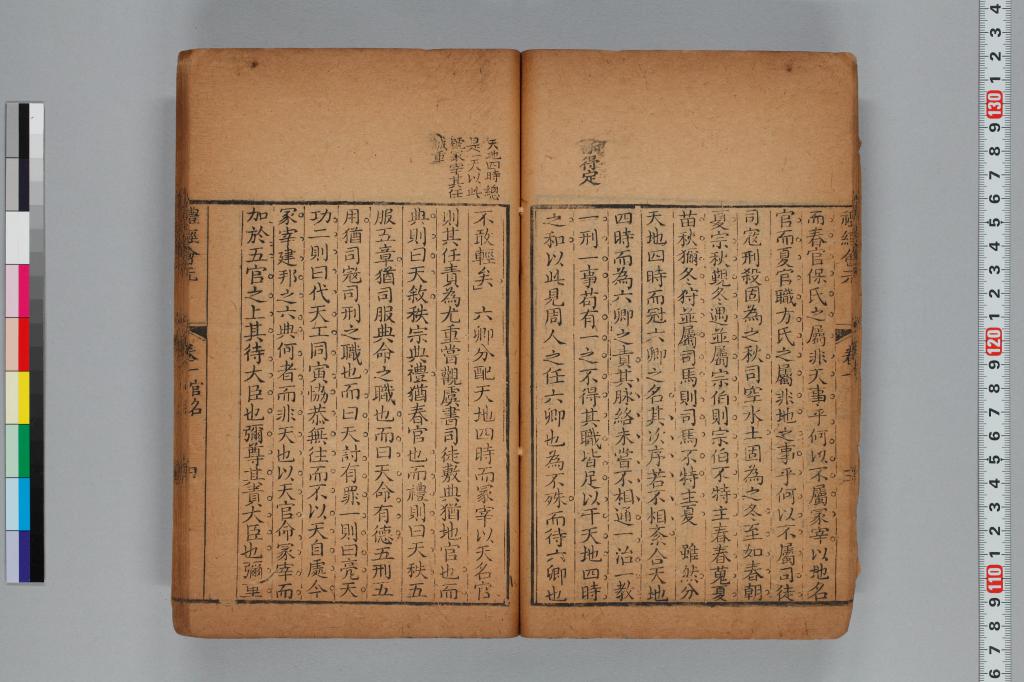 得定
而春官保氏之屬非天事乎何以不屬冢宰以地名
官而夏官職方氏之屬非地之事乎何以不屬司徒
司寇刑殺固為之秋司空水土固為之冬至如春朝
夏宗秋覲冬遇並屬宗伯則宗伯不特主春春蒐夏
苗秋獮冬狩並屬司馬則司馬不特主夏 雖然分
天地四時而冠六卿之名其次序若不相紊合天地
四時而為六卿之責其脉絡未嘗不相通一治一教
一刑一事苟有一之不得其職皆足以干天地四時
之和以此見周人之任六卿也為不殊而待六卿也
天地四時總
是一天以此
冢宰其任
誠重
不敢輕矣 六卿分配天地四時而冢宰以天名官
則其任責為尤重嘗觀虞書司徒敷典猶地官也而
典則曰天敘秩宗典禮猶春官也而禮則曰天秩五
服五章猶司服典命之職也而曰天命有德五刑五
用猶司寇司刑之職也而曰天討有罪一則曰亮天
功二則曰代天工同寅恊恭無往而不以天自處今
冢宰建邦之六典何者而非天也以天官命冢宰而
加於五官之上其待大臣也彌尊其責大臣也彌重
禮經會元
卷一 官名
四
禮經會元
卷一
三